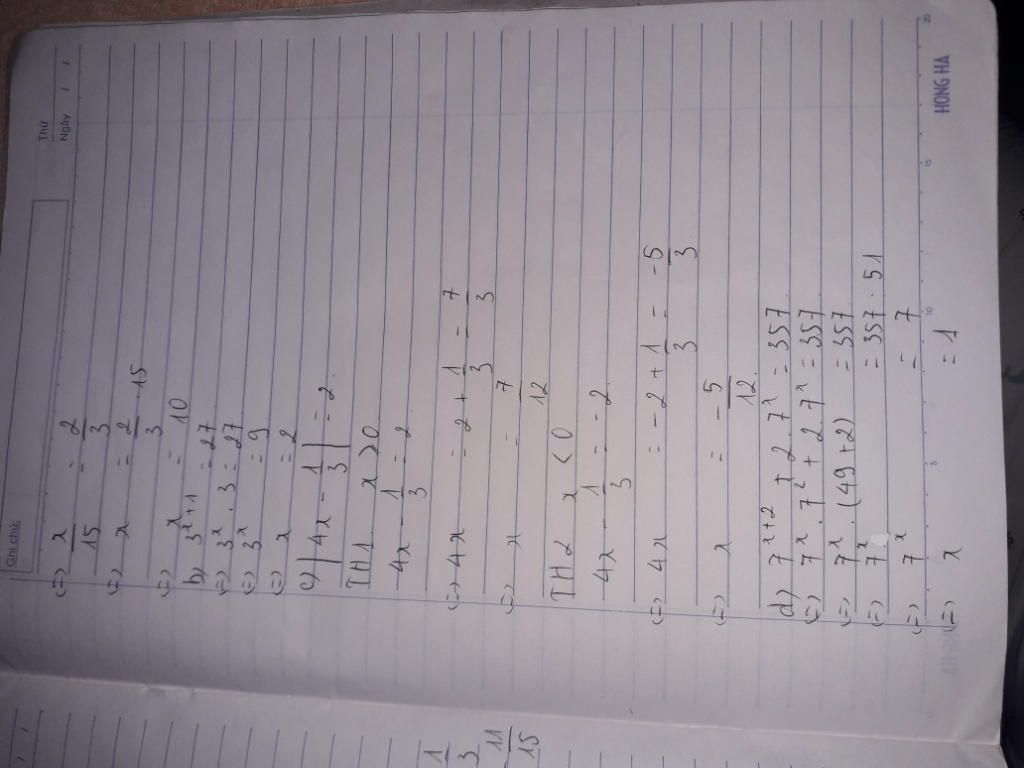 Ghi chú:
Thứ
Ngày / /
(=) x/15 = 2/3
(=) x = 2/3 . 15
(=) x = 10
b) 3^(x+1) = 27
(=) 3^x . 3 = 27
(=) 3^x = 9
(=) x = 2
c) |4x - 1/3| = 2.
TH1 x > 0
4x - 1/3 = 2
(=) 4x = 2 + 1/3 = 7/3
(=) x = 7/12
TH2 x < 0
4x - 1/3 = - 2
(=) 4x = - 2 + 1/3 = -5/3
(=) x = - 5/12.
d) 7^(x+2) + 2 . 7^x = 357.
(=) 7^x . 7^2 + 2 . 7^x = 357.
(=) 7^x . (49 + 2) = 357.
(=) 7^x = 357 . 51
(=) 7^x = 7
(=) x = 1
5 10 15 20
HONG HA
1/3
11/15